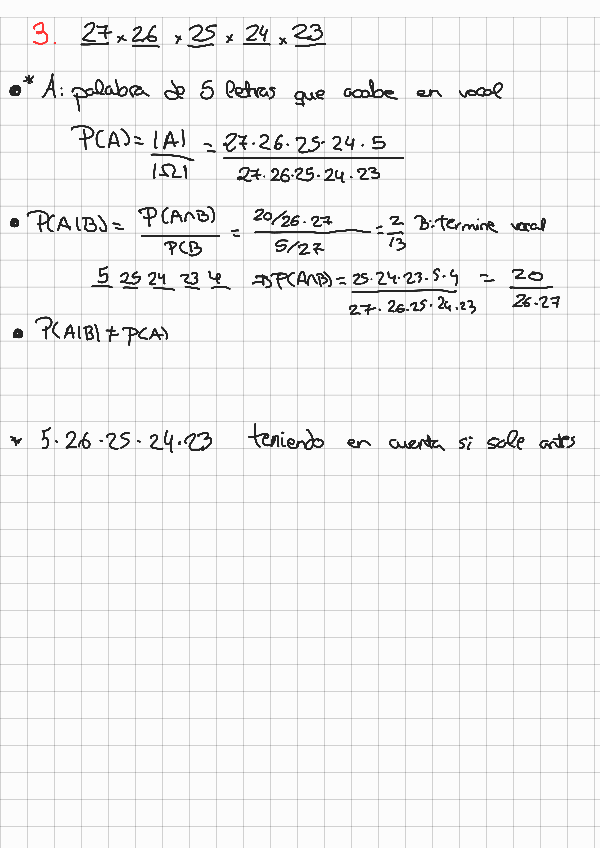 3. 27 × 26 × 25 × 24 × 23
• * A: palabra de 5 letras que acabe en vocal
P(A) = |A| / |Ω| = 27·26·25·24·5 / 27·26·25·24·23
• P(A|B) = P(A∩B) / P(B = 20/26·27 / 5/27 = 2/13 B: termine vocal
5 25 24 23 4 => P(A∩B) = 25·24·23·5·4 / 27·26·25·24·23 = 20 / 26·27
• P(A|B) ≠ P(A)
* 5·26·25·24·23 teniendo en cuenta si sale antes